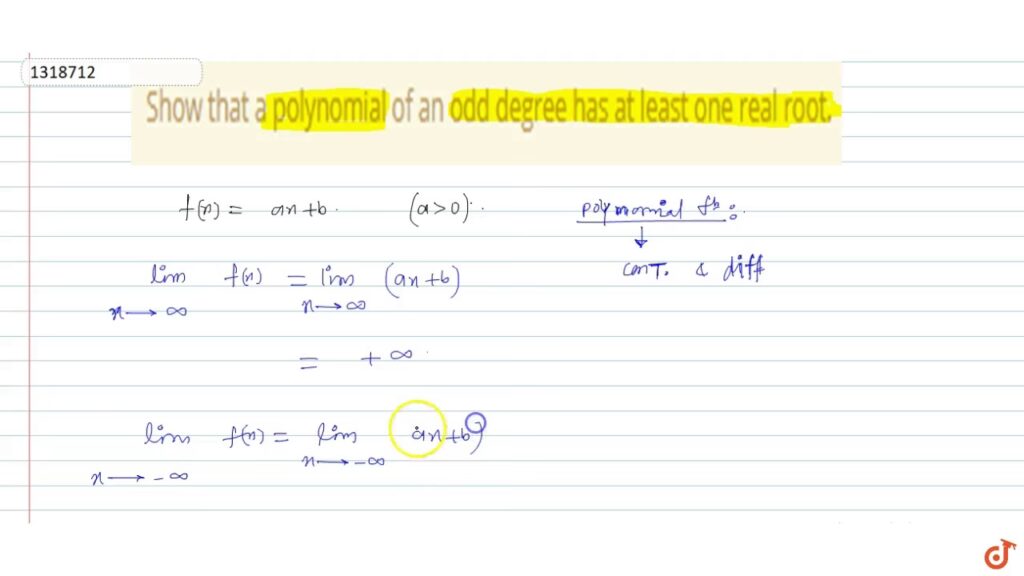 1318712
Show that a polynomial of an odd degree has at least one real root.
f(x) = ax+b. (a>0).
polynomial fn:
↓
conT. & diff
lim f(x) = lim (ax+b)
x→∞ x→∞
= +∞.
lim f(x) = lim ax+b)
x→-∞ x→-∞